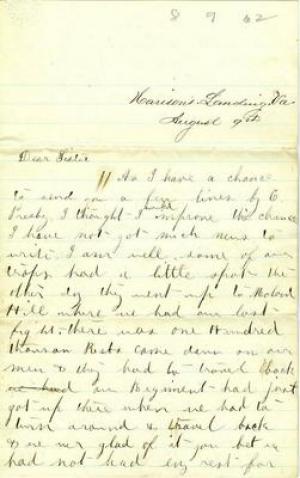 8 9 62
Harison's Landing, Va.
August 9th
Dear Sister
As I have a chance
to send you a few lines by C.
I thought I would improve the chance
I have not got much news to
write, I am well. some of our
troops had a little spat the
other day they went up to Malvern
Hill where we had our last
fight, there was one Hundred
thousan Rebs came down on our
men & they had to travel back
we had our Regiment had just
got up there when we had to
turn around & travel back
& we wer glad of it you bet we
had not had eny rest for